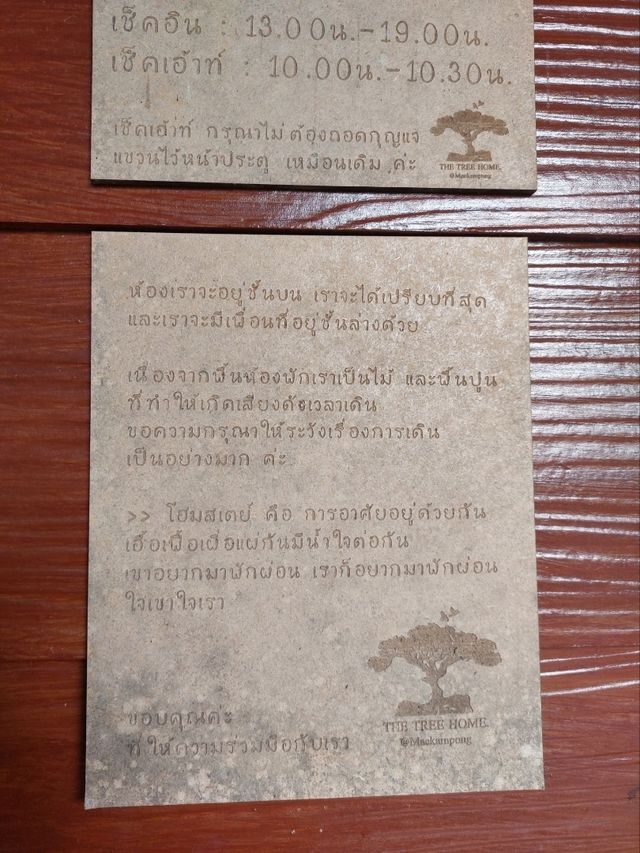 เช็คอิน : 13.00น.-19.00น.
เช็คเอ้าท์ : 10.00น.-10.30น.
เช็คเอ้าท์ กรุณาไม่ต้องถอดกุญแจ
แขวนไว้หน้าประตู เหมือนเดิม ค่ะ
THE TREE HOME.
@Maekampong
ห้องเราจะอยู่ชั้นบน เราจะได้เปรียบที่สุด
และเราจะมีเพื่อนที่อยู่ชั้นล่างด้วย
เนื่องจากพื้นห้องพักเราเป็นไม้ และพื้นปูน
ที่ทำให้เกิดเสียงดังเวลาเดิน
ขอความกรุณาให้ระวังเรื่องการเดิน
เป็นอย่างมาก ค่ะ
>> โฮมสเตย์ คือ การอาศัยอยู่ด้วยกัน
เอื้อเฟื้อเผื่อแผ่กันมีน้ำใจต่อกัน
เขาอยากมาพักผ่อน เราก็อยากมาพักผ่อน
ใจเขาใจเรา
ขอบคุณค่ะ
ที่ให้ความร่วมมือกับเรา
THE TREE HOME.
@Maekampong